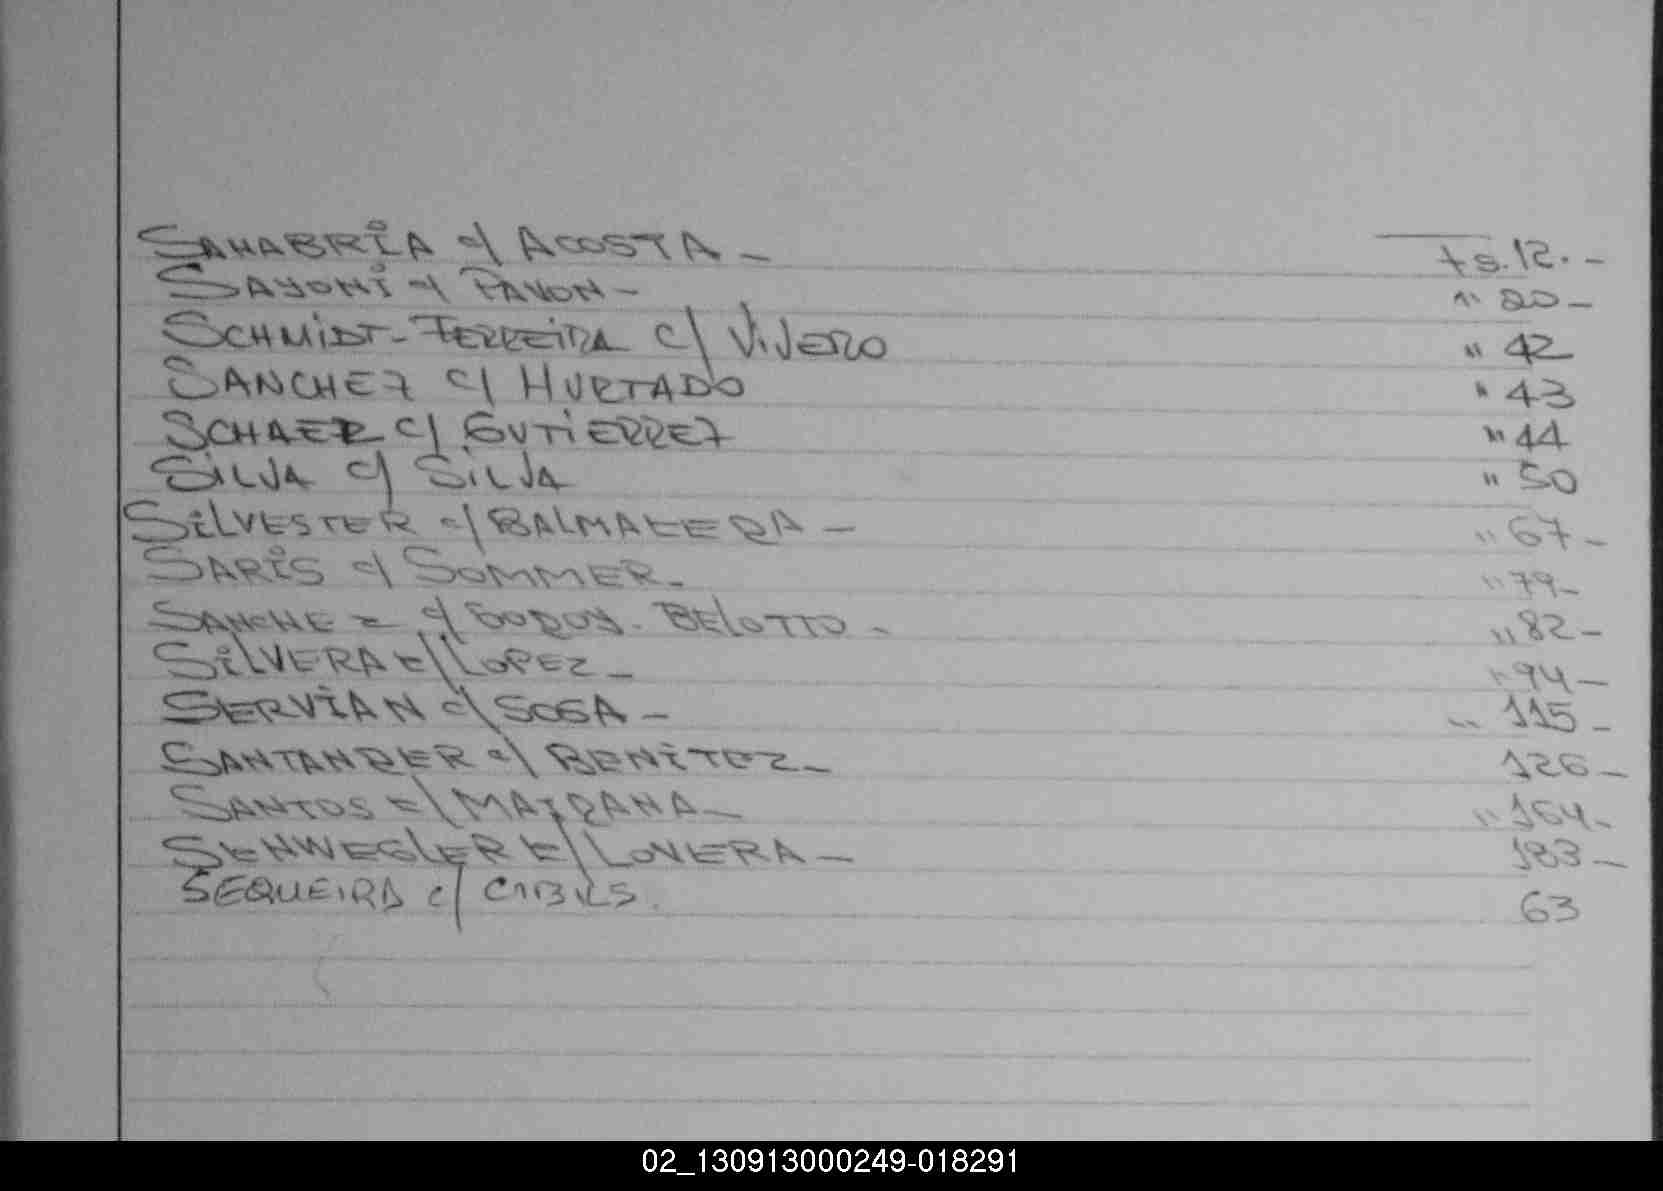 SANABRIA c/ ACOSTA - fs. 12. -
SAYONI c/ PAVON - " 20 -
SCHMIDT - FERREIRA c/ VIVERO " 42
SANCHEZ c/ HURTADO " 43
SCHAER c/ GUTIERREZ " 44
SILVA c/ SILVA " 50
SILVESTER c/ BALMACEDA - " 67 -
SARIS c/ SOMMER - " 79 -
SANCHEZ c/ GODOY - BELOTTO - " 82 -
SILVERA c/ LOPEZ - " 94 -
SERVIAN c/ SOSA - " 115 -
SANTANDER c/ BENITEZ - 126 -
SANTOS c/ MAIDANA - " 164 -
SCHWEGLER c/ LOVERA - 183 -
SEQUEIRA c/ CIBILS. 63
02_130913000249-018291